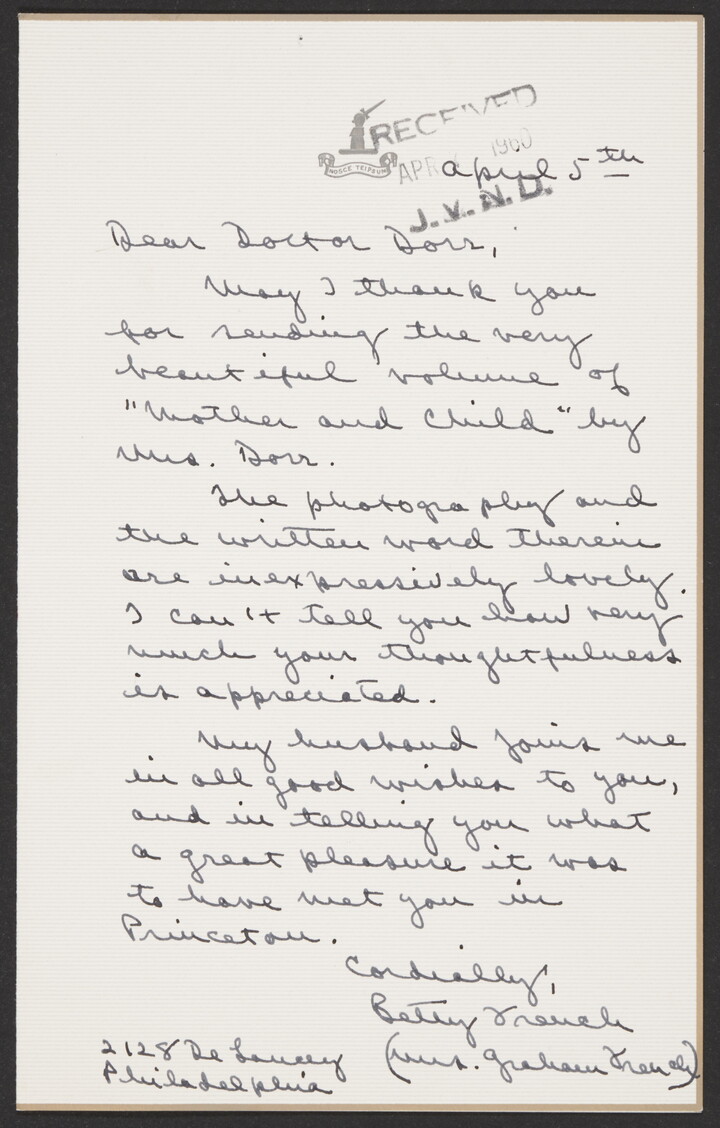 RECEIVED
APR 1960
J.V.N.D.
NOSCE TEIPSUM
April 5th
Dear Doctor Dorr,
May I thank you
for sending the very
beautiful volume of
"Mother and Child" by
Mrs. Dorr.
The photography and
the written word therein
are inexpressively lovely.
I can't tell you how very
much your thoughtfulness
is appreciated.
My husband joins me
in all good wishes to you,
and in telling you what
a great pleasure it was
to have met you in
Princeton.
Cordially,
Betty French
(Mrs. Graham French)
2128 De Lancey
Philadelphia